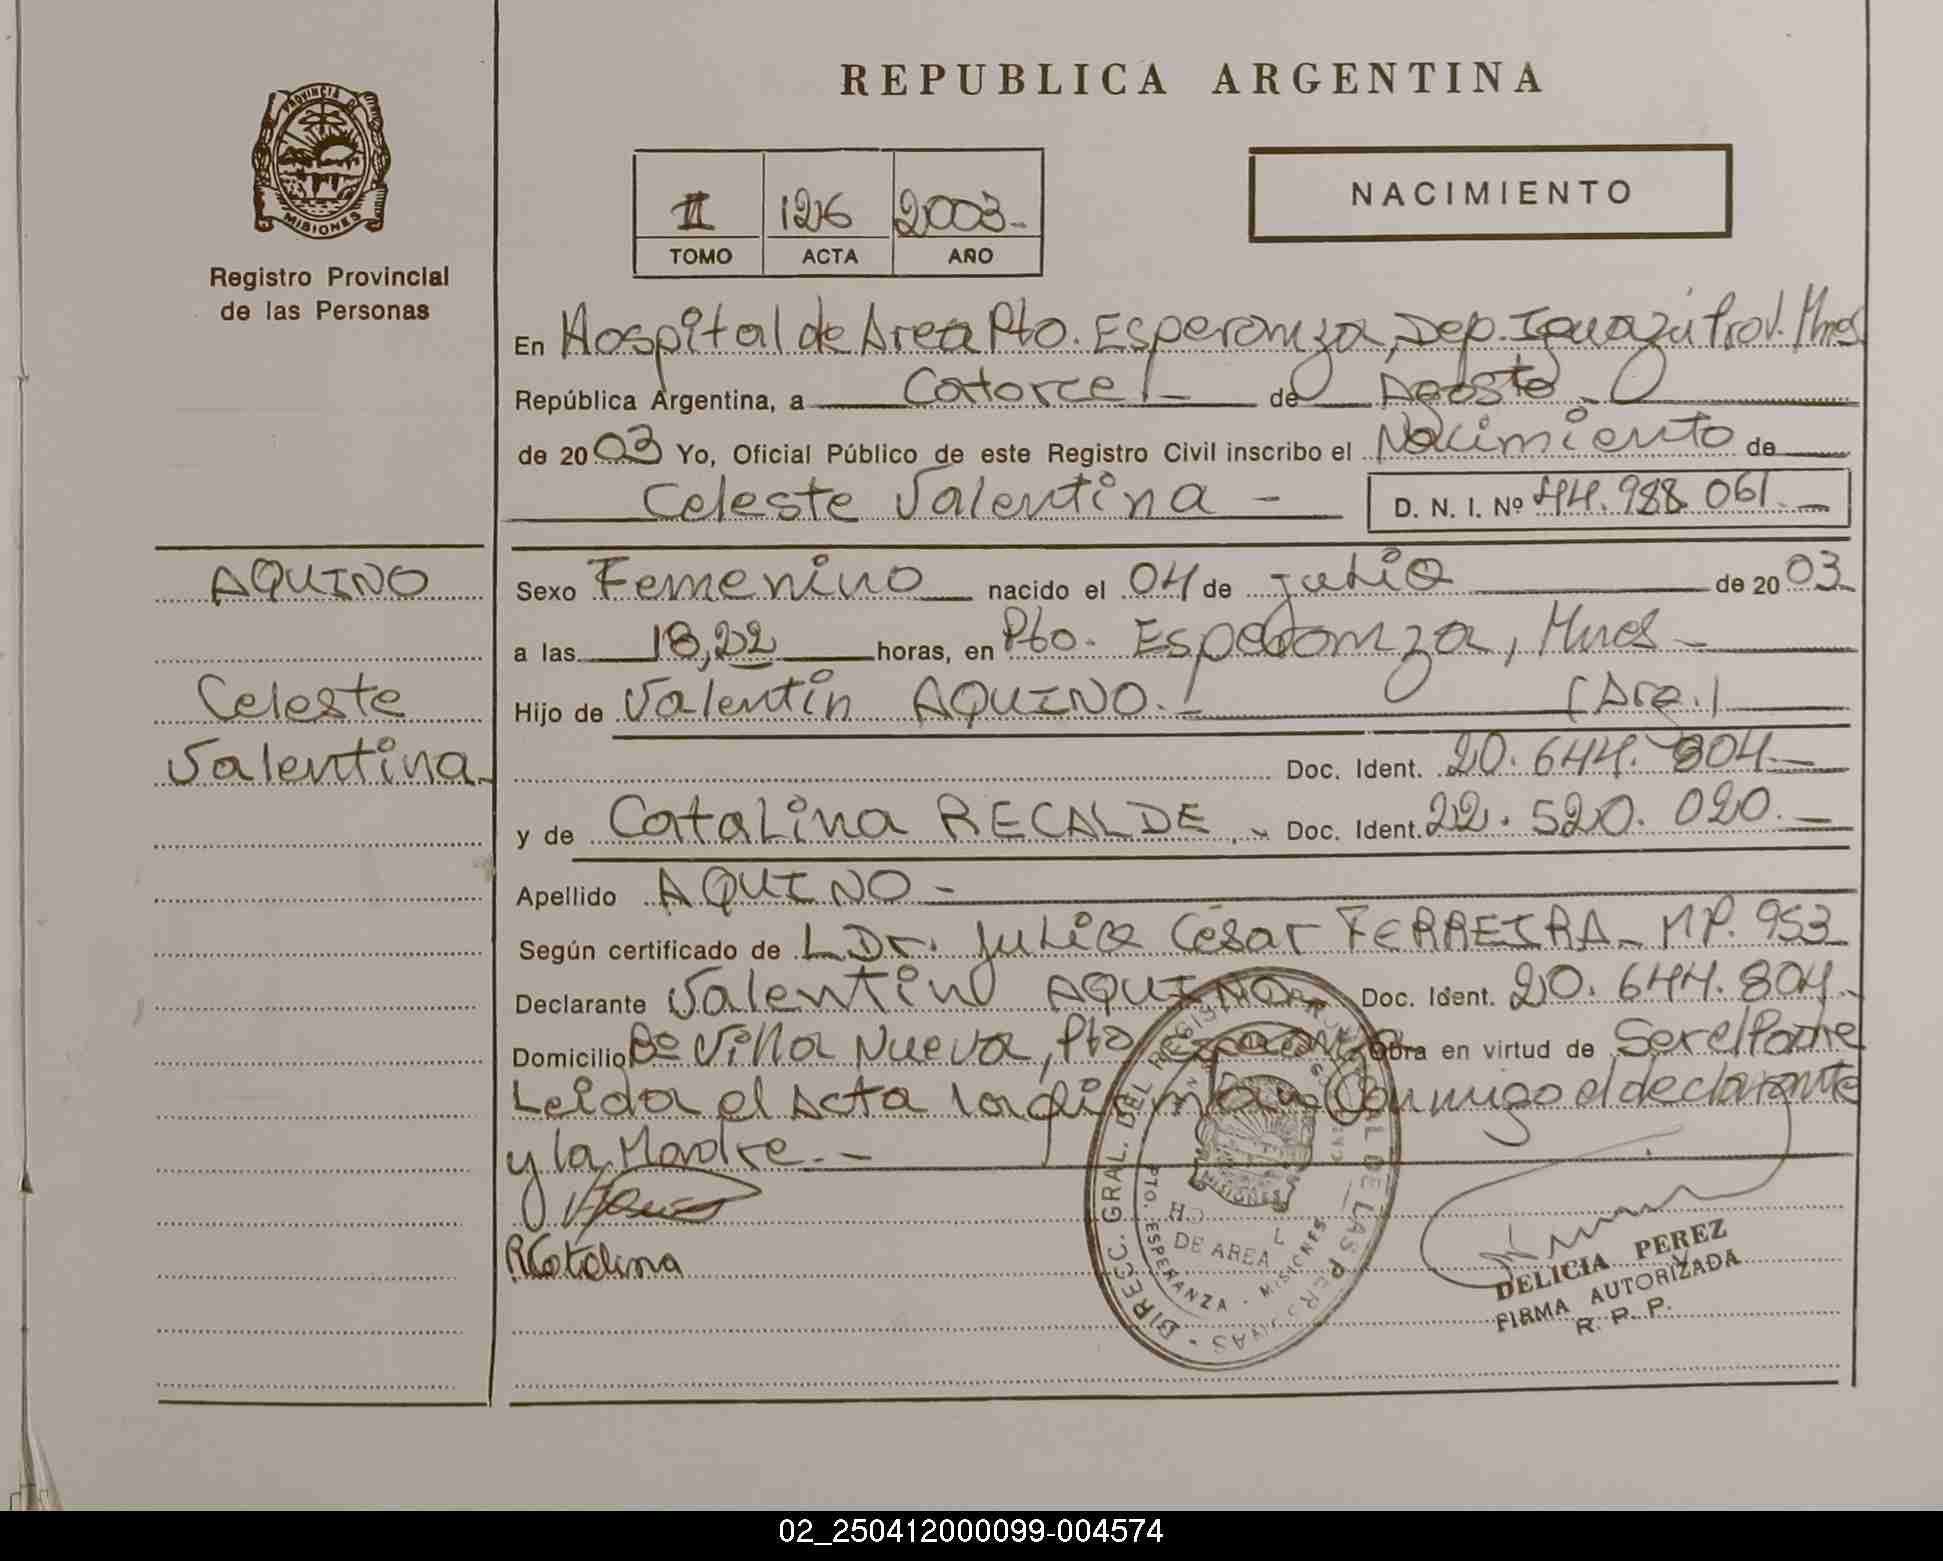 REPUBLICA ARGENTINA
PROVINCIA DE
MISIONES
Registro Provincial
de las Personas
II 126 2003-
TOMO ACTA AÑO
NACIMIENTO
En Hospital de Area Pto. Esperanza, Dep. Iguazú Prov. Mnes
República Argentina, a Catorce - de Agosto -
de 2003 Yo, Oficial Público de este Registro Civil inscribo el Nacimiento de
Celeste Valentina -
D. N. I. Nº 44.988.061. -
AQUINO
Celeste
Valentina-
Sexo Femenino nacido el 04 de julio de 2003
a las 18,22 horas, en Pto. Esperanza, Mnes -
Hijo de Valentín AQUINO. - (Arg.)
Doc. Ident. 20.644.804. -
y de Catalina RECALDE - Doc. Ident. 22.520.020. -
Apellido AQUINO -
Según certificado de L Dr. Julio César FERREIRA - MP. 953
Declarante Valentino AQUINO Doc. Ident. 20.644.804.-
Domicilio Bº Villa Nueva, Pto Esperanza Obra en virtud de Ser el Padre
Leida el Acta la firman Conmigo el declarante
y la Madre. -
R Catalina
DIRECC. GRAL. DEL REGISTRO DE LAS PERSONAS
MISIONES
DE AREA
PTO. ESPERANZA - MISIONES
DELICIA PEREZ
FIRMA AUTORIZADA
R. P. P.
02_250412000099-004574